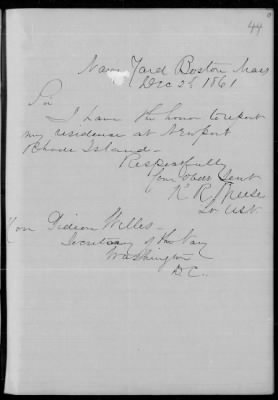 44
Navy Yard Boston Mass
Dec 1861
Sir
I have the honor to report
my residence at Newport
Rhode Island -
Respectfully
Your Obdt Servt
Lt USN
Hon Gideon Welles -
Secretary of the Navy
Washington
D.C.